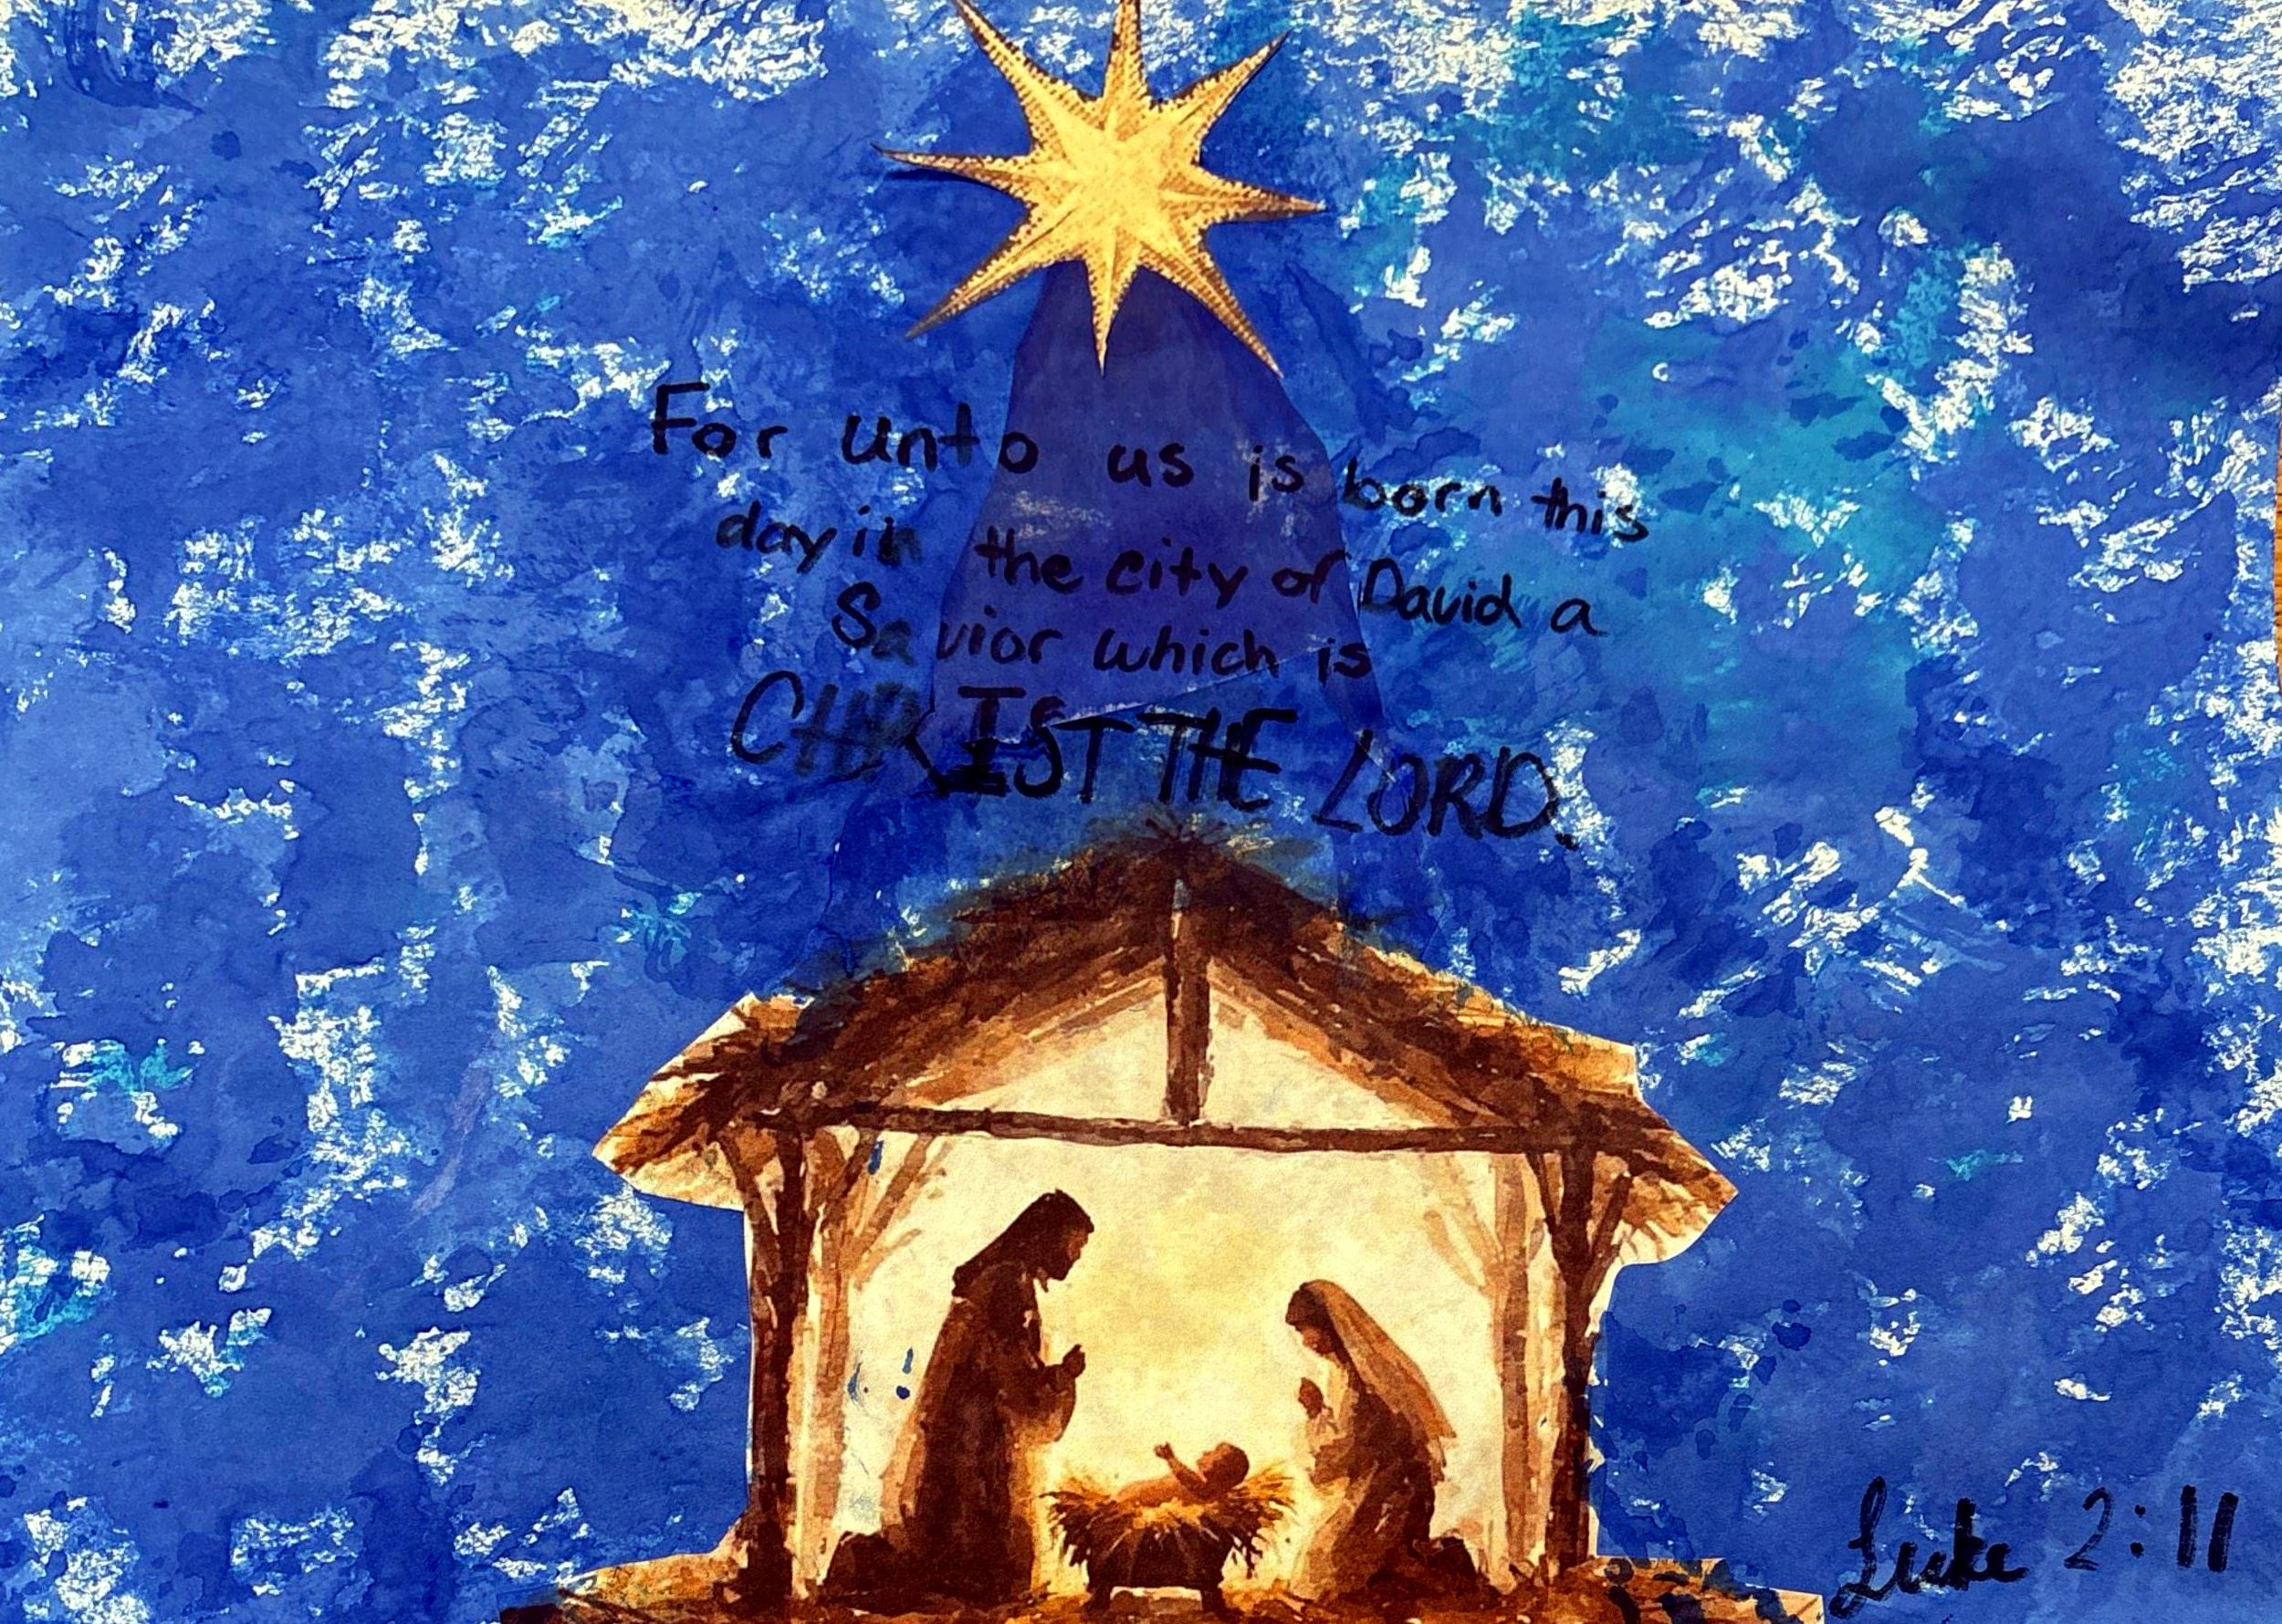 For unto us is born this
day in the city of David a
Savior which is
CHRIST THE LORD.
Luke 2:11